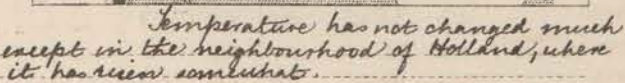 Temperature has not changed much
except in the neighbourhood of Holland, where
it has risen somewhat.